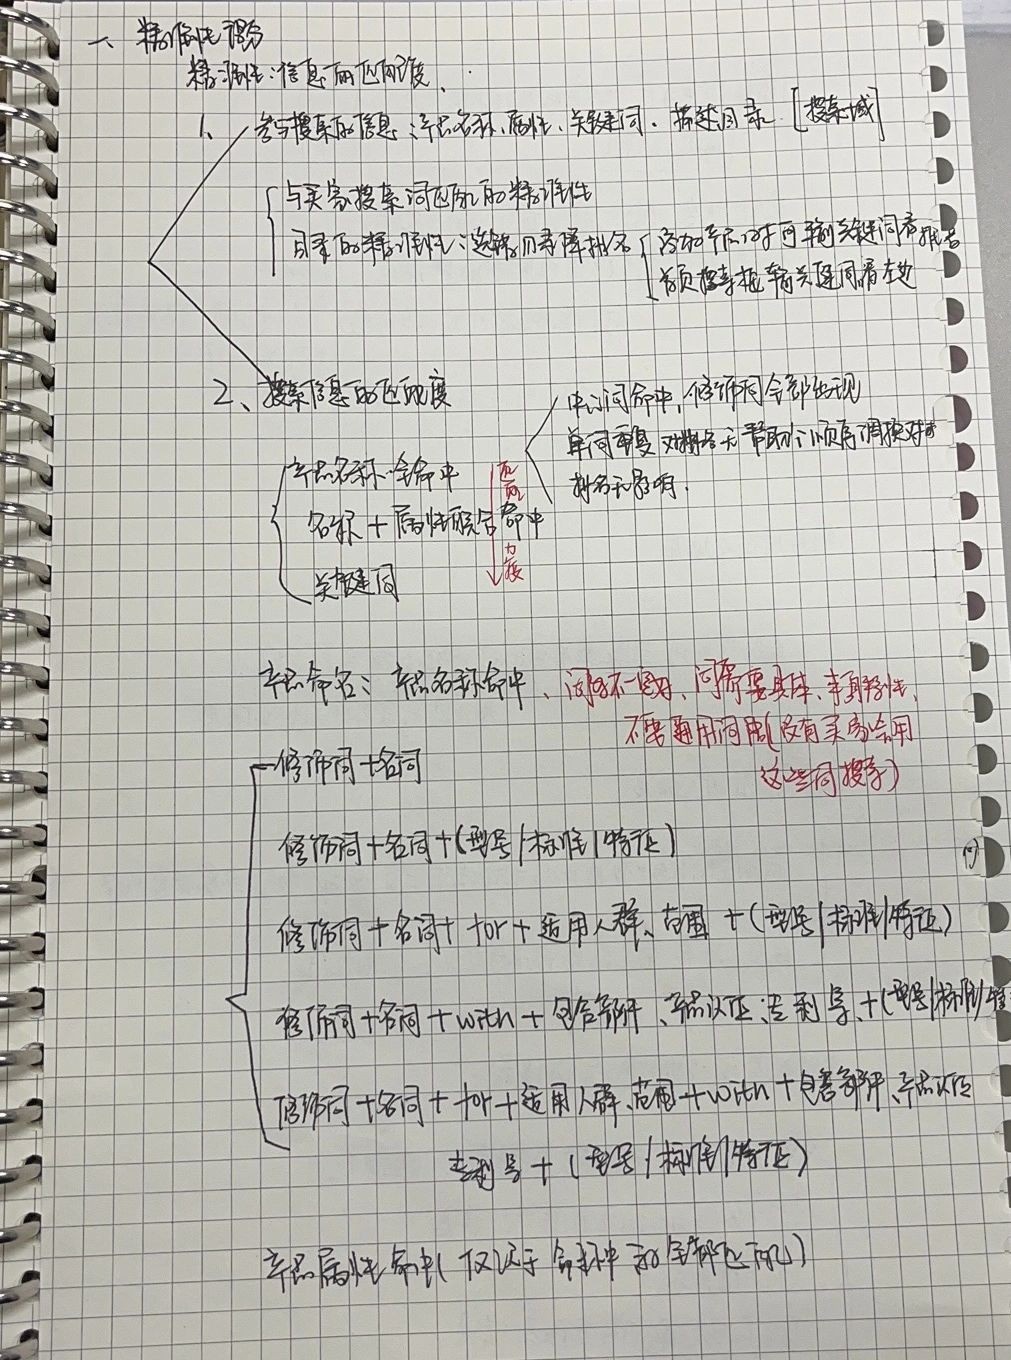 一、精准性得分
精准性：信息的匹配度.
1、参与搜索的信息：产品名称、属性、关键词、描述目录 [搜索域]
与买家搜索词匹配的精准性
目录的精准性：选错目录降排名
添加产品时可输关键词看推荐
首页搜索框输关键词看左边
2、搜索信息的匹配度
中心词命中，修饰词全部出现
单词重复对排名无帮助，顺序调换对
排名无影响.
产品名称：全命中
名称 + 属性联合命中
关键词
匹配力度
产品命名：产品名称命中、词多不一定好、词需要具体、丰富特性、
不要通用词用(没有买家会用
这些词搜索)
修饰词+名词
修饰词+名词+(型号/标准/特征)
修饰词+名词+for+适用人群、范围 +(型号/标准/特征)
修饰词+名词+with+包含部件、产品认证、专利号、+(型号/标准/特
修饰词+名词+for+适用人群、范围+with+包含部件、产品认证
专利号+(型号/标准/特征)
产品属性命中(仅次于命名中的全部匹配)